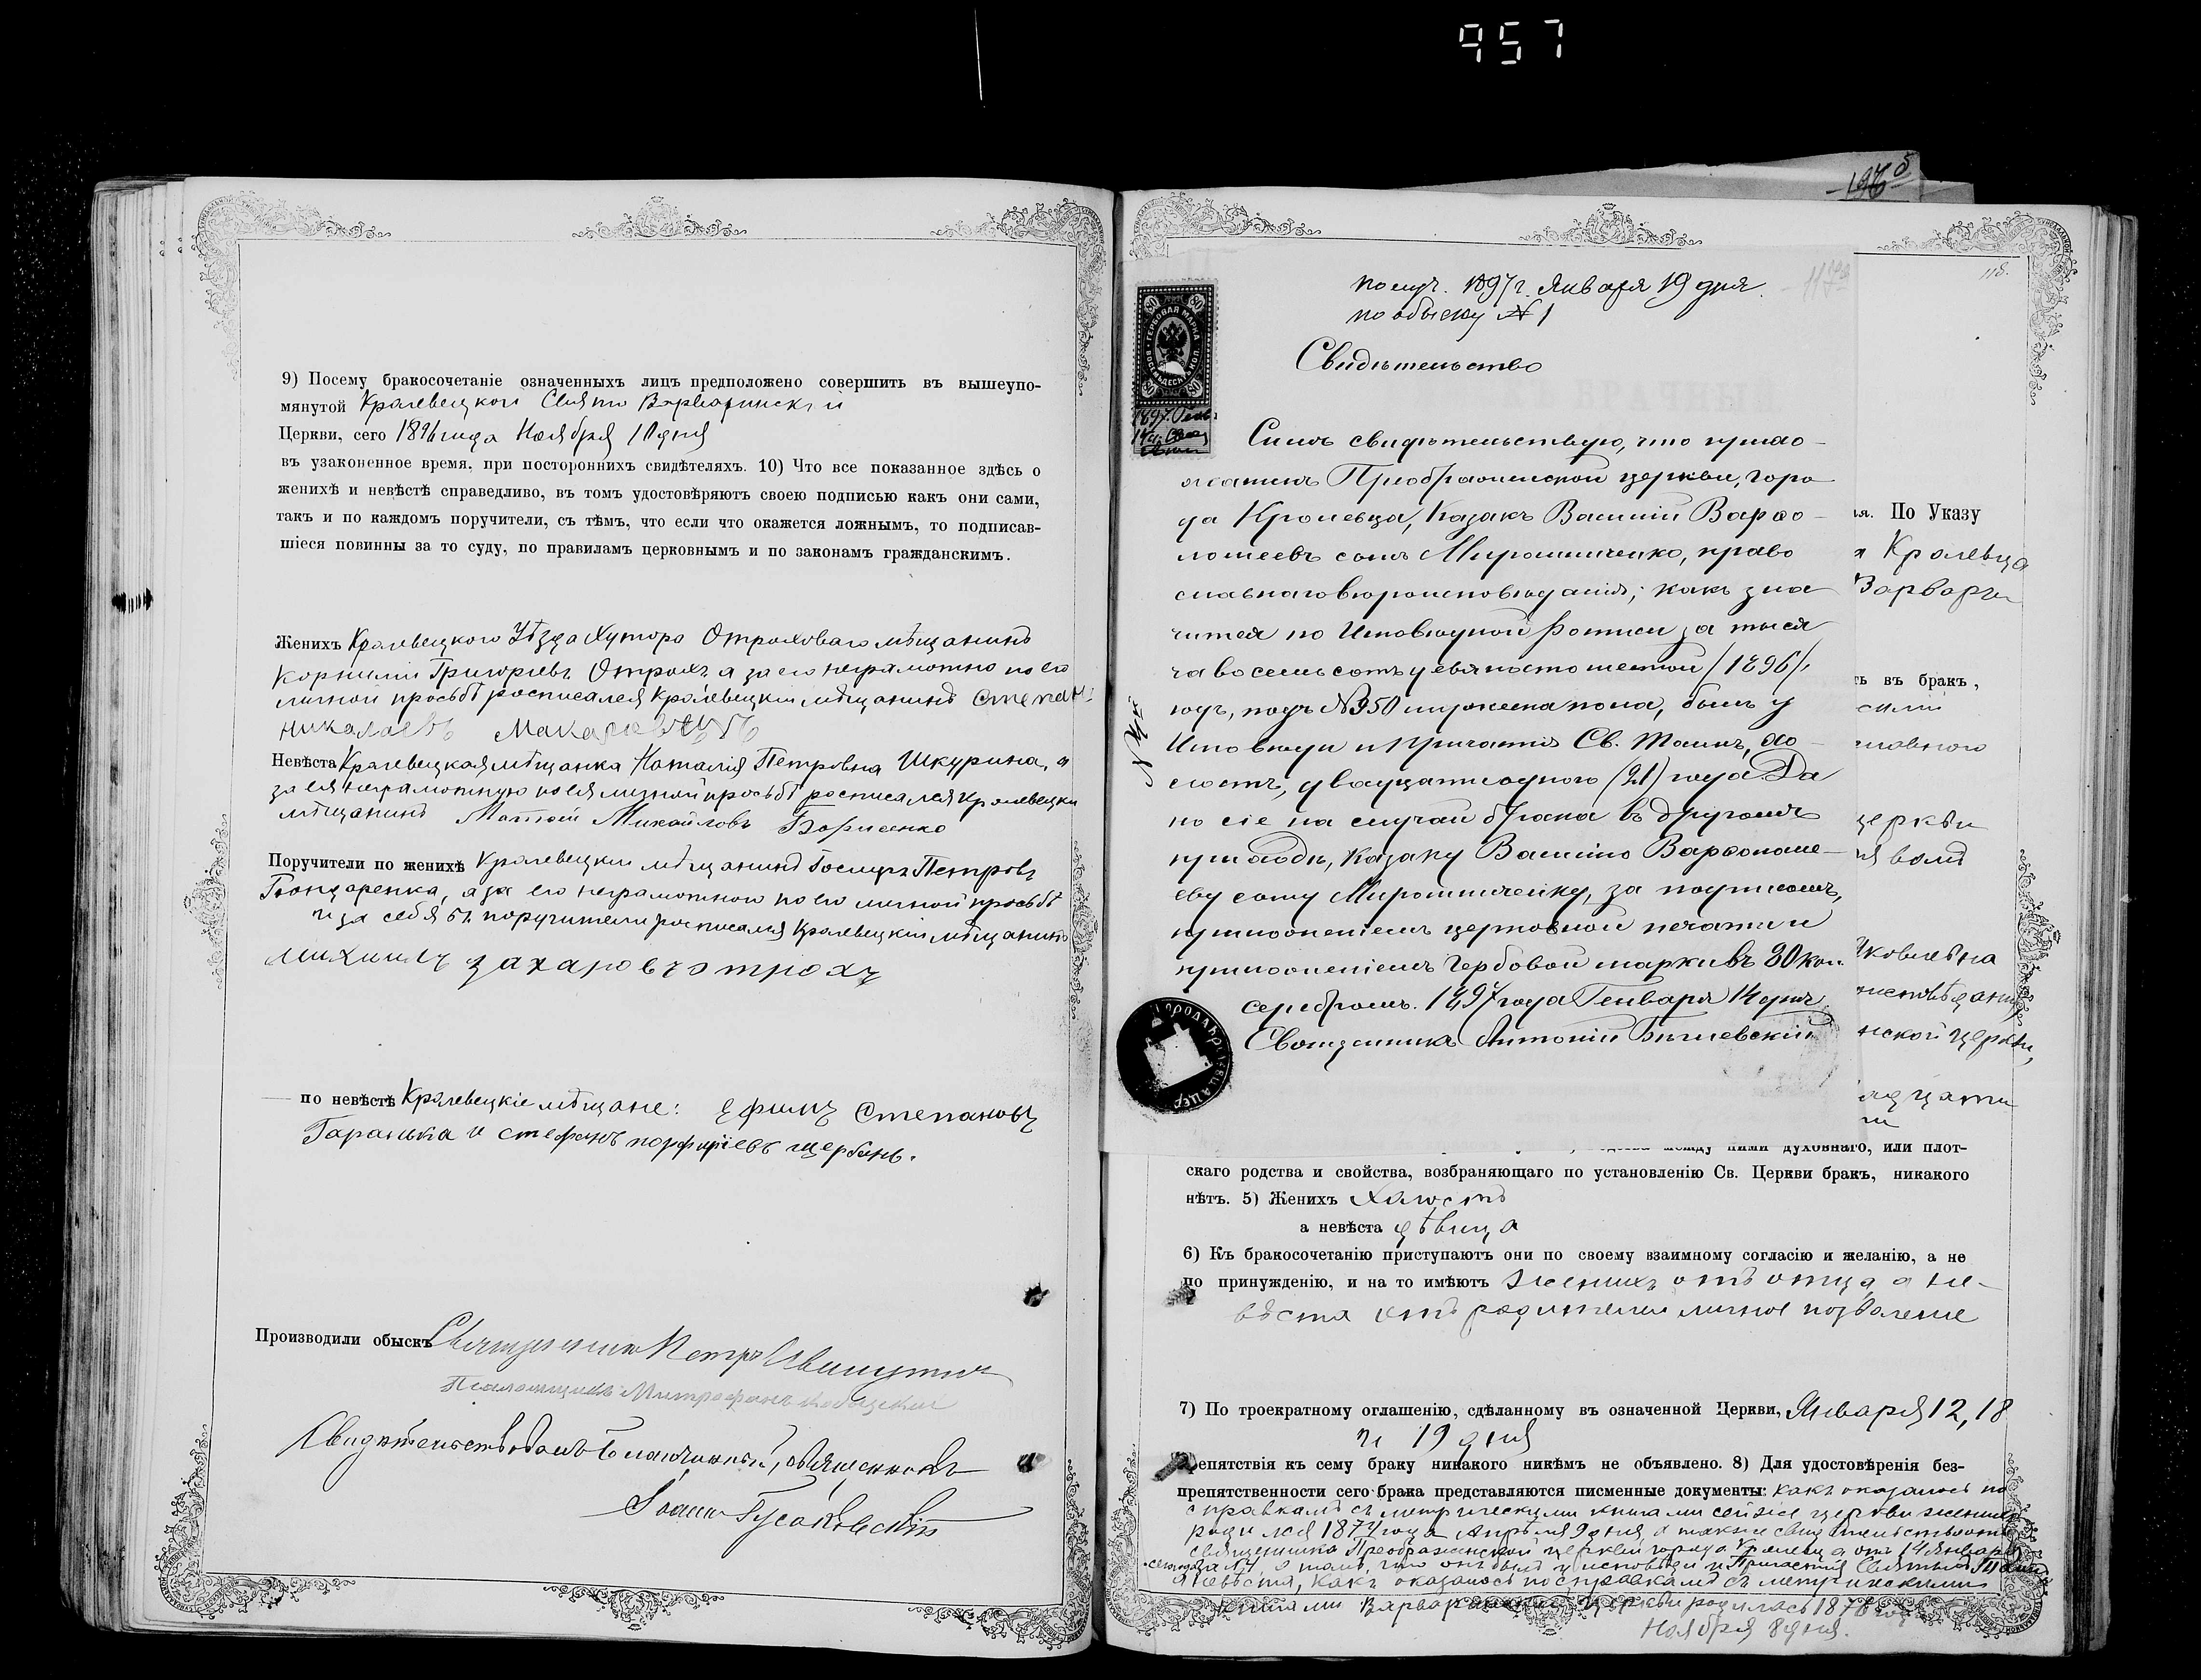 957
9) Посему бракосочетаніе означенныхъ лицъ предположено совершить въ вышеупо-
мянутой Кролевецкой Свято Варваринской
Церкви, сего 1896 года Ноября 10 дня
въ узаконенное время, при постороннихъ свидѣтеляхъ. 10) Что все показанное здѣсь о
женихѣ и невѣстѣ справедливо, въ томъ удостовѣряютъ своею подписью какъ они сами,
такъ и по каждомъ поручители, съ тѣмъ, что если что окажется ложнымъ, то подписав-
шіеся повинны за то суду, по правиламъ церковнымъ и по законамъ гражданскимъ.
Женихъ Кролевецкого Уѣзда Хутора Отрохового мѣщанинъ
Корнилій Григорьевъ Отрохъ а за его неграмотно по его
личной просьбѣ росписался Кролевецкій мѣщанинъ Степанъ
Николаевъ
Невѣста Кролевецкая мѣщанка Наталія Петровна Шкурина, а
за ея неграмотную по ея личной просьбѣ росписался Кролевецкій
мѣщанинъ Матвій Михайловъ Борисенко
Поручители по женихѣ Кролевецкій мѣщанинъ Петровъ
Бондаренка, а за его неграмотного по его личной просьбѣ
и за себя въ поручители росписался Кролевецкій мѣщанинъ
михаилъ захаровъ отрохъ
по невѣстѣ Кролевецкіе мѣщане: ефимъ Степановъ
Гаранька и стефанъ порфиріевъ щербань.
Производили обыскъ Священникъ Петръ
Псаломщикъ Митрофанъ
Свидѣтельствовалъ Благочинный, священникъ
Іоаннъ Гусаковскій
196
118.
получ. 1897 г. Января 19 дня.
по обыску № 1
Свидѣтельство
ГЕРБОВАЯ МАРКА
80
ВОСЕМЬДЕСЯТЪ КОП.
Симъ свидѣтельствую, что прихо-
жанинъ Преображенской церкви, горо-
да Кролевца, Казакъ Василій Варѳо-
ломеевъ сынъ Мирошниченко, право
славнаго вѣроисповѣданія; какъ зна
чится по Исповѣдной росписи за тыся
ча восемьсотъ девяносто шестой /1896/
годъ, подъ № 350 мужеска пола, былъ у
Исповѣди и Причастія Св. Таинъ, хо-
лостъ, двадцати одного (21) года. Да
но сіе на случай брака въ другомъ
приходѣ, Казаку Василію Варѳоломе-
еву сыну Мирошниченку, за подписомъ,
приложеніемъ церковной печати и
приложеніемъ гербовой марки въ 80 коп.
серебромъ. 1897 года Генваря 14 дня.
Священникъ Антоній
№ 4й
ія. По Указу
Кролевца
Варвари
ть въ брак,
церкви
Яковлевна
нской церкви,
ними духовнаго, или плот-
скаго родства и свойства, возбраняющаго по установленію Св. Церкви бракъ, никакого
нѣтъ. 5) Женихъ Холостъ
а невѣста дѣвица
6) Къ бракосочетанію приступаютъ они по своему взаимному согласію и желанію, а не
по принужденію, и на то имѣютъ женихъ отъ отца, а не-
вѣста отъ родителей личное позволеніе
7) По троекратному оглашенію, сдѣланному въ означенной Церкви, Января 12, 18
и 19 дня
препятствія къ сему браку никакого никѣмъ не объявлено. 8) Для удостовѣренія без-
препятственности сего брака представляются писменные документы: какъ оказалось по
справкамъ съ метрическими книгами сей церкви женихъ
родился 1874 года Апрѣля 9 дня, а также свидѣтельство
священника Преображенской церкви города Кролевца отъ 14 Января
сего года № 4, о томъ, что онъ былъ у исповѣди и Причастія Святыхъ Таинъ
а невѣста, какъ оказалось по справкамъ съ метрическими
книгами Варваринской церкви родилась 1878 года
Ноября 8 дня.